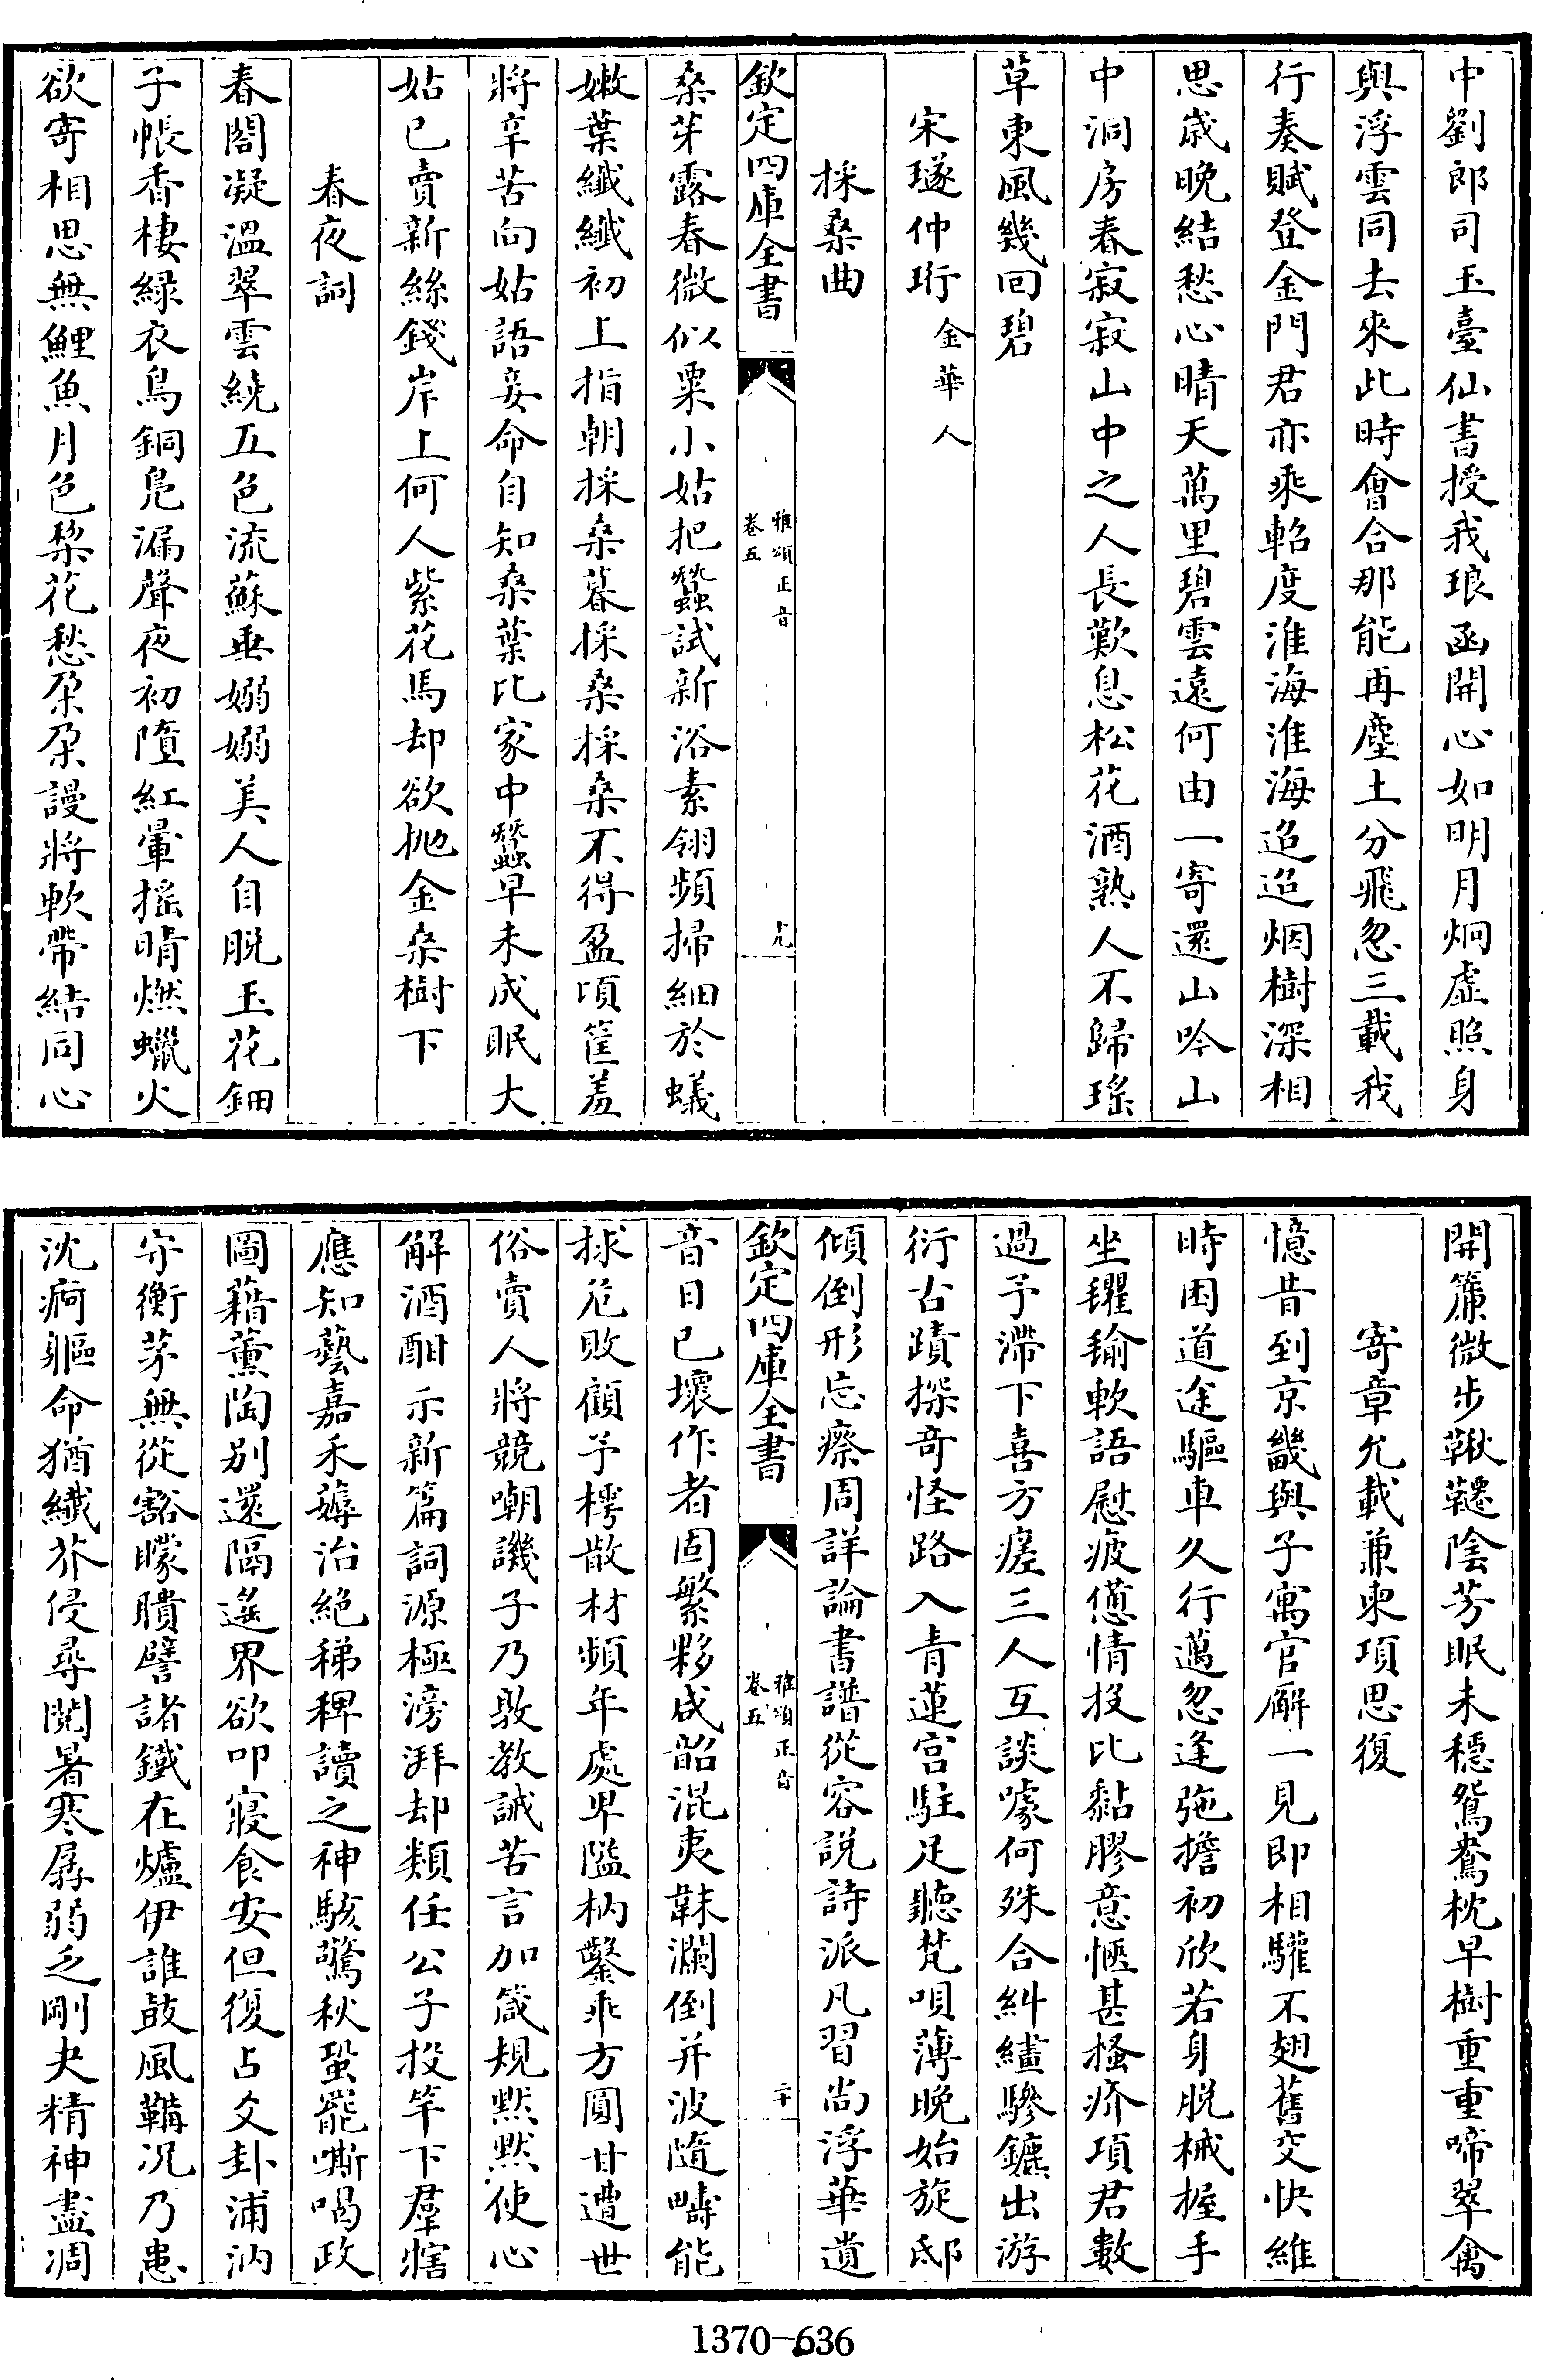 中劉郎司玉臺仙書授我琅函開心如明月炯虛照身
與浮雲同去來此時會合那能再塵土分飛忽三載我
行奏賦登金門君亦乘軺度淮海淮海迢迢烟樹深相
思歲晚結愁心晴天萬里碧雲遠何由一寄還山吟山
中洞房春寂寂山中之人長歎息松花酒熟人不歸瑤
草東風幾回碧
宋璲仲珩金華人
採桑曲
欽定四庫全書
雅頌正音
卷五
十九
桑芽露春微似粟小姑把蠶試新浴素翎頻掃細於蟻
嫩葉纖纖初上指朝採桑暮採桑採桑不得盈頃筐羞
將辛苦向姑語妾命自知桑葉比家中蠶早未成眠大
姑已賣新絲錢岸上何人紫花馬却欲拋金桑樹下
春夜詞
春閣凝溫翠雲繞五色流蘇垂嫋嫋美人自脫玉花鈿
子帳香棲綠衣鳥銅鳧漏聲夜初墮紅暈搖晴燃蠟火
欲寄相思無鯉魚月色棃花愁朶朶謾將軟帶結同心
開簾微步鞦韆陰芳眠未穩鴛鴦枕早樹重重啼翠禽
寄章允載兼柬項思復
憶昔到京畿與子寓官廨一見即相驩不翅舊交快維
時困道途驅車久行邁忽逢弛擔初欣若身脫械握手
坐氍毹軟語慰疲憊情投比黏膠意愜甚搔疥項君數
過予滯下喜方瘥三人互談噱何殊合糾纆驂鑣出游
衍古蹟探奇怪路入青蓮宮駐足聽梵唄薄晚始旋邸
傾倒形忘瘵周詳論書譜從容説詩派凡習尚浮華遺
欽定四庫全書
雅頌正音
卷五
二十
音日已壞作者固繁夥咸韶混夷韎瀾倒并波隨疇能
捄危敗顧予樗散材頻年處卑隘枘鑿乖方圓甘遭世
俗賣人將競嘲譏子乃斆教誡苦言加箴規默默使心
解酒酣示新篇詞源極滂湃却類任公子投竿下羣犗
應知藝嘉禾薅治絶稊稗讀之神駭驚秋蛩罷嘶喝政
圖藉薰陶别還隔遙界欲叩寢食安但復占爻卦浦汭
守衡茅無從豁矇瞶譬諸鐵在爐伊誰鼓風鞴况乃患
沈痾軀命猶纖芥侵尋閱暑寒孱弱乏剛夬精神盡凋
1370-636